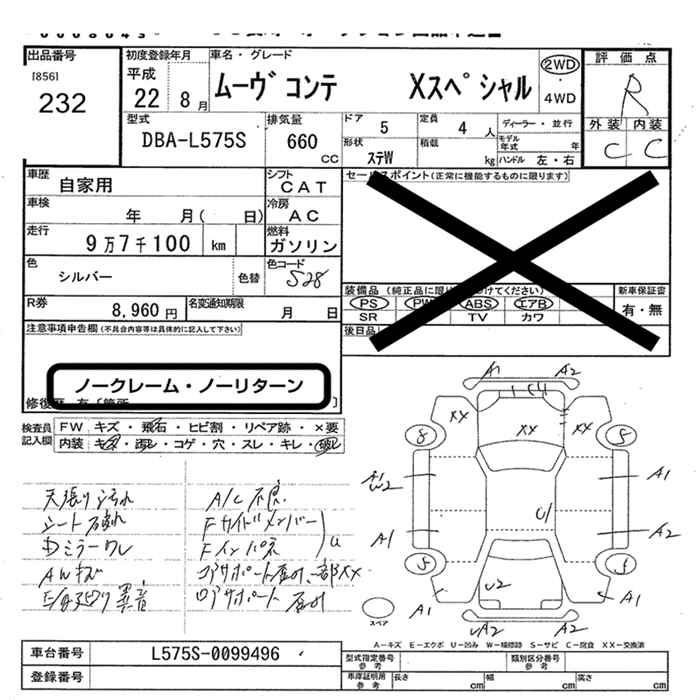 出品番号
[856]
232
初度登録年月
平成
22 8月
車名・グレード
ムーヴ コンテ Xスペシャル
2WD
・
4WD
評価点
R
外装 内装
C C
型式
DBA-L575S
排気量
660
CC
ドア
5
定員
4 人
ディーラー・並行
形状
ステW
積載
kg
モデル年式 年
ハンドル 左・右
車歴
自家用
シフト
CAT
車検
年 月( 日)
冷房
AC
走行
9万7千100 km
燃料
ガソリン
色
シルバー
色替
色コード
S28
R券
8,960円
名変通知期限
月 日
セールスポイント(正常に機能するものに限ります)
PS PW ABS エアB
SR TV カワ
新車保証書
有・無
後日品
注意事項申告欄(不具合内容等は具体的に記入して下さい)
ノークレーム・ノーリターン
検査員
記入欄
FW キズ・飛石・ヒビ割・リペア跡・×要
内装 キズ・汚レ・コゲ・穴・スレ・キレ・破レ
天張り汚れ
シート破れ
Dミラーワレ
AWキズ
異音
A/C不良
Fサイドメンバー
Fインパネ
U
コアサポート曲り、一部XX
ロアサポート曲り
A1 A2
XX XX
8 5
A1
A1
U1
A1
A2
5 5
U2
A1 A1
UA2 A2
スペア
A-キズ E-エクボ U-凹み W-補修跡 S-サビ C-腐食 XX-交換済
車台番号
L575S-0099496
登録番号
型式指定番号
参考
類別区分番号
参考
車庫証明用
参考
長さ cm
幅 cm
高さ cm